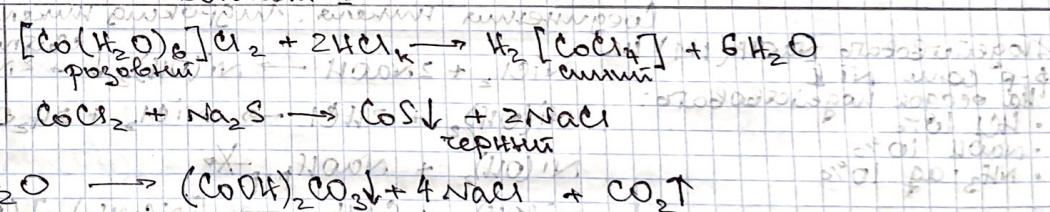 [Co(H₂O)₆]Cl₂ + 2HClₖ → H₂[CoCl₄] + 6H₂O
розовый синий
CoCl₂ + Na₂S → CoS↓ + 2NaCl
черный
₂O → (CoOH)₂CO₃↓ + 4NaCl + CO₂↑